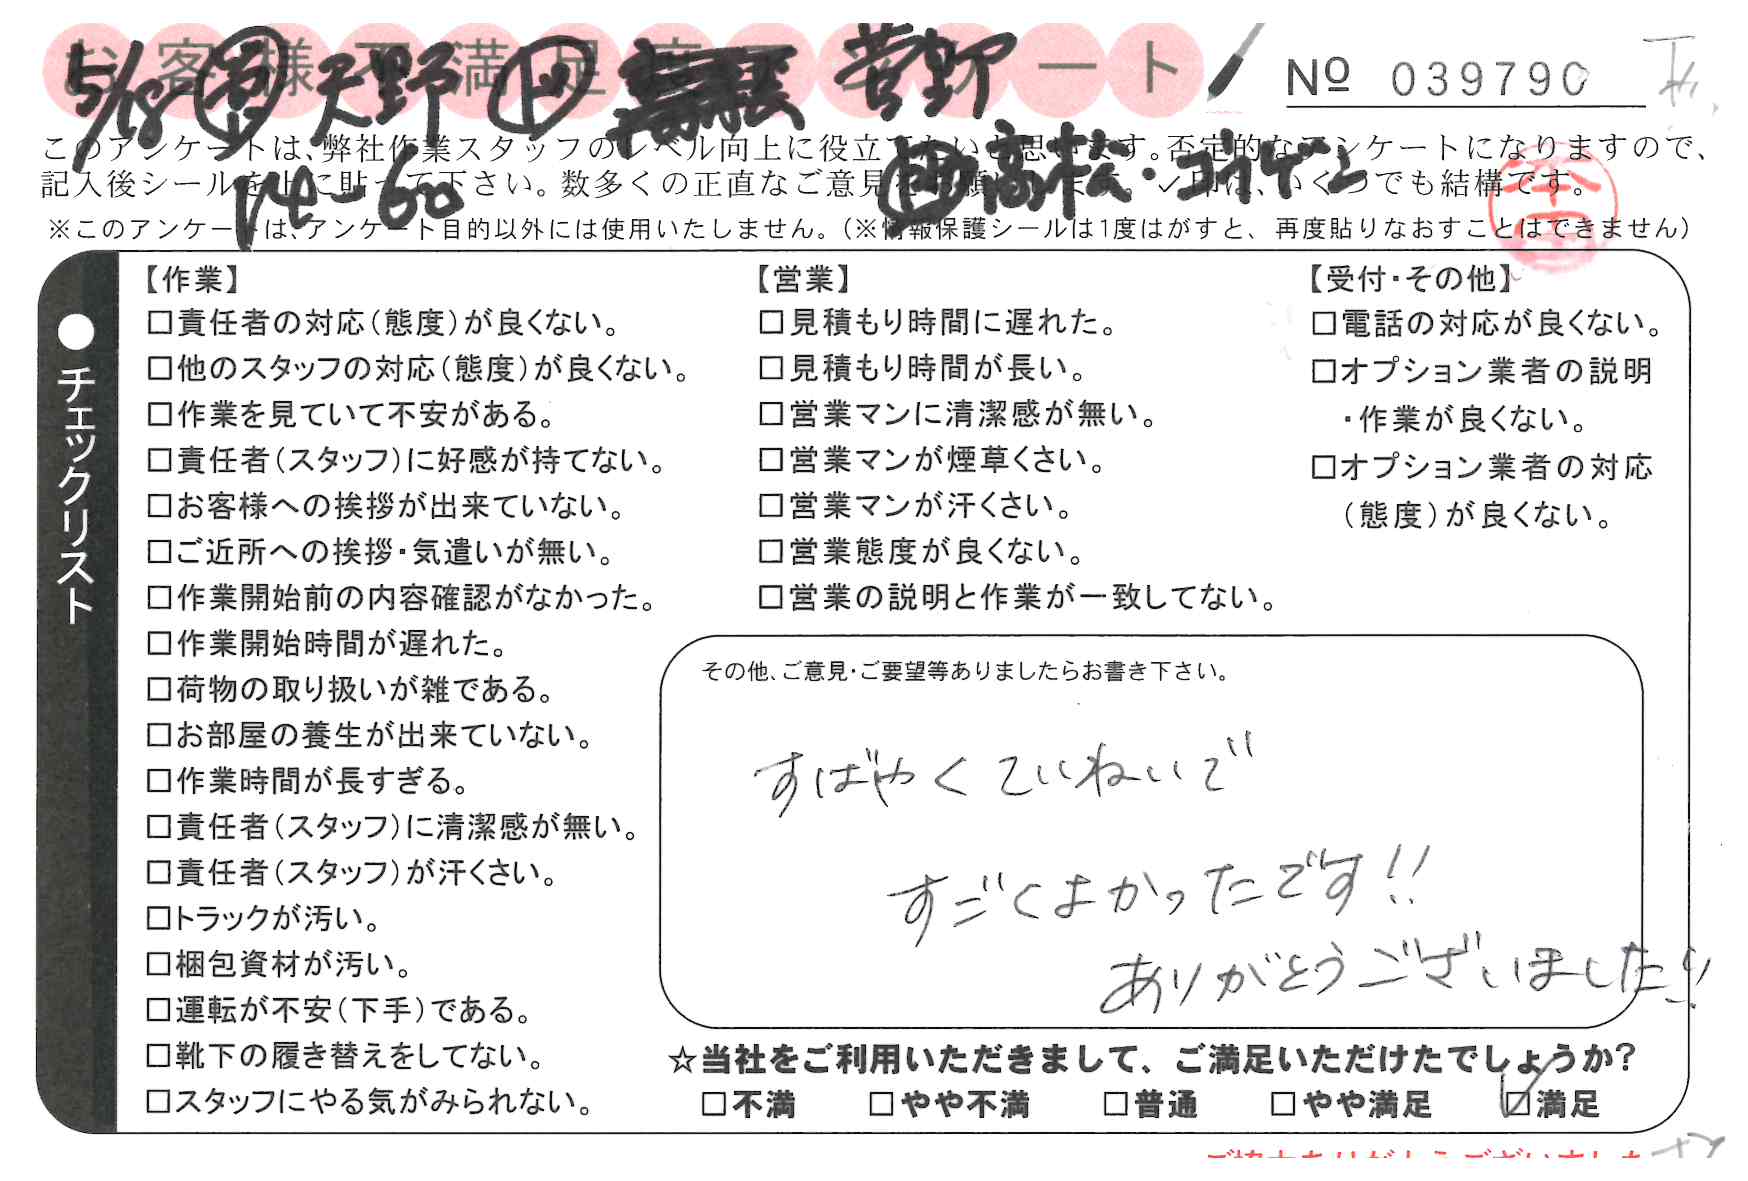 お客様不満足度アンケート
№ 039790
5/18 天野 菅野
高松・コウケン
14-60
このアンケートは、弊社作業スタッフのレベル向上に役立てたいと思います。否定的なアンケートになりますので、
記入後シールを上に貼って下さい。数多くの正直なご意見をお願いします。✓印は、いくつでも結構です。
※このアンケートは、アンケート目的以外には使用いたしません。(※情報保護シールは1度はがすと、再度貼りなおすことはできません)
●チェックリスト
【作業】
□責任者の対応(態度)が良くない。
□他のスタッフの対応(態度)が良くない。
□作業を見ていて不安がある。
□責任者(スタッフ)に好感が持てない。
□お客様への挨拶が出来ていない。
□ご近所への挨拶・気遣いが無い。
□作業開始前の内容確認がなかった。
□作業開始時間が遅れた。
□荷物の取り扱いが雑である。
□お部屋の養生が出来ていない。
□作業時間が長すぎる。
□責任者(スタッフ)に清潔感が無い。
□責任者(スタッフ)が汗くさい。
□トラックが汚い。
□梱包資材が汚い。
□運転が不安(下手)である。
□靴下の履き替えをしてない。
□スタッフにやる気がみられない。
【営業】
□見積もり時間に遅れた。
□見積もり時間が長い。
□営業マンに清潔感が無い。
□営業マンが煙草くさい。
□営業マンが汗くさい。
□営業態度が良くない。
□営業の説明と作業が一致してない。
【受付・その他】
□電話の対応が良くない。
□オプション業者の説明
・作業が良くない。
□オプション業者の対応
(態度)が良くない。
その他、ご意見・ご要望等ありましたらお書き下さい。
すばやくていねいで
すごくよかったです!!
ありがとうございました!!
☆当社をご利用いただきまして、ご満足いただけたでしょうか?
□不満 □やや不満 □普通 □やや満足 ☑満足
ご協力ありがとうございました